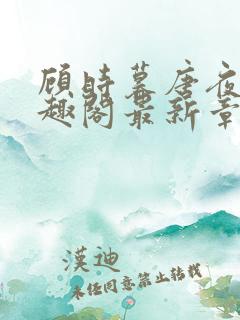 顾时幕唐夜
趣阁最新章
漢迪
未经同意禁止转载